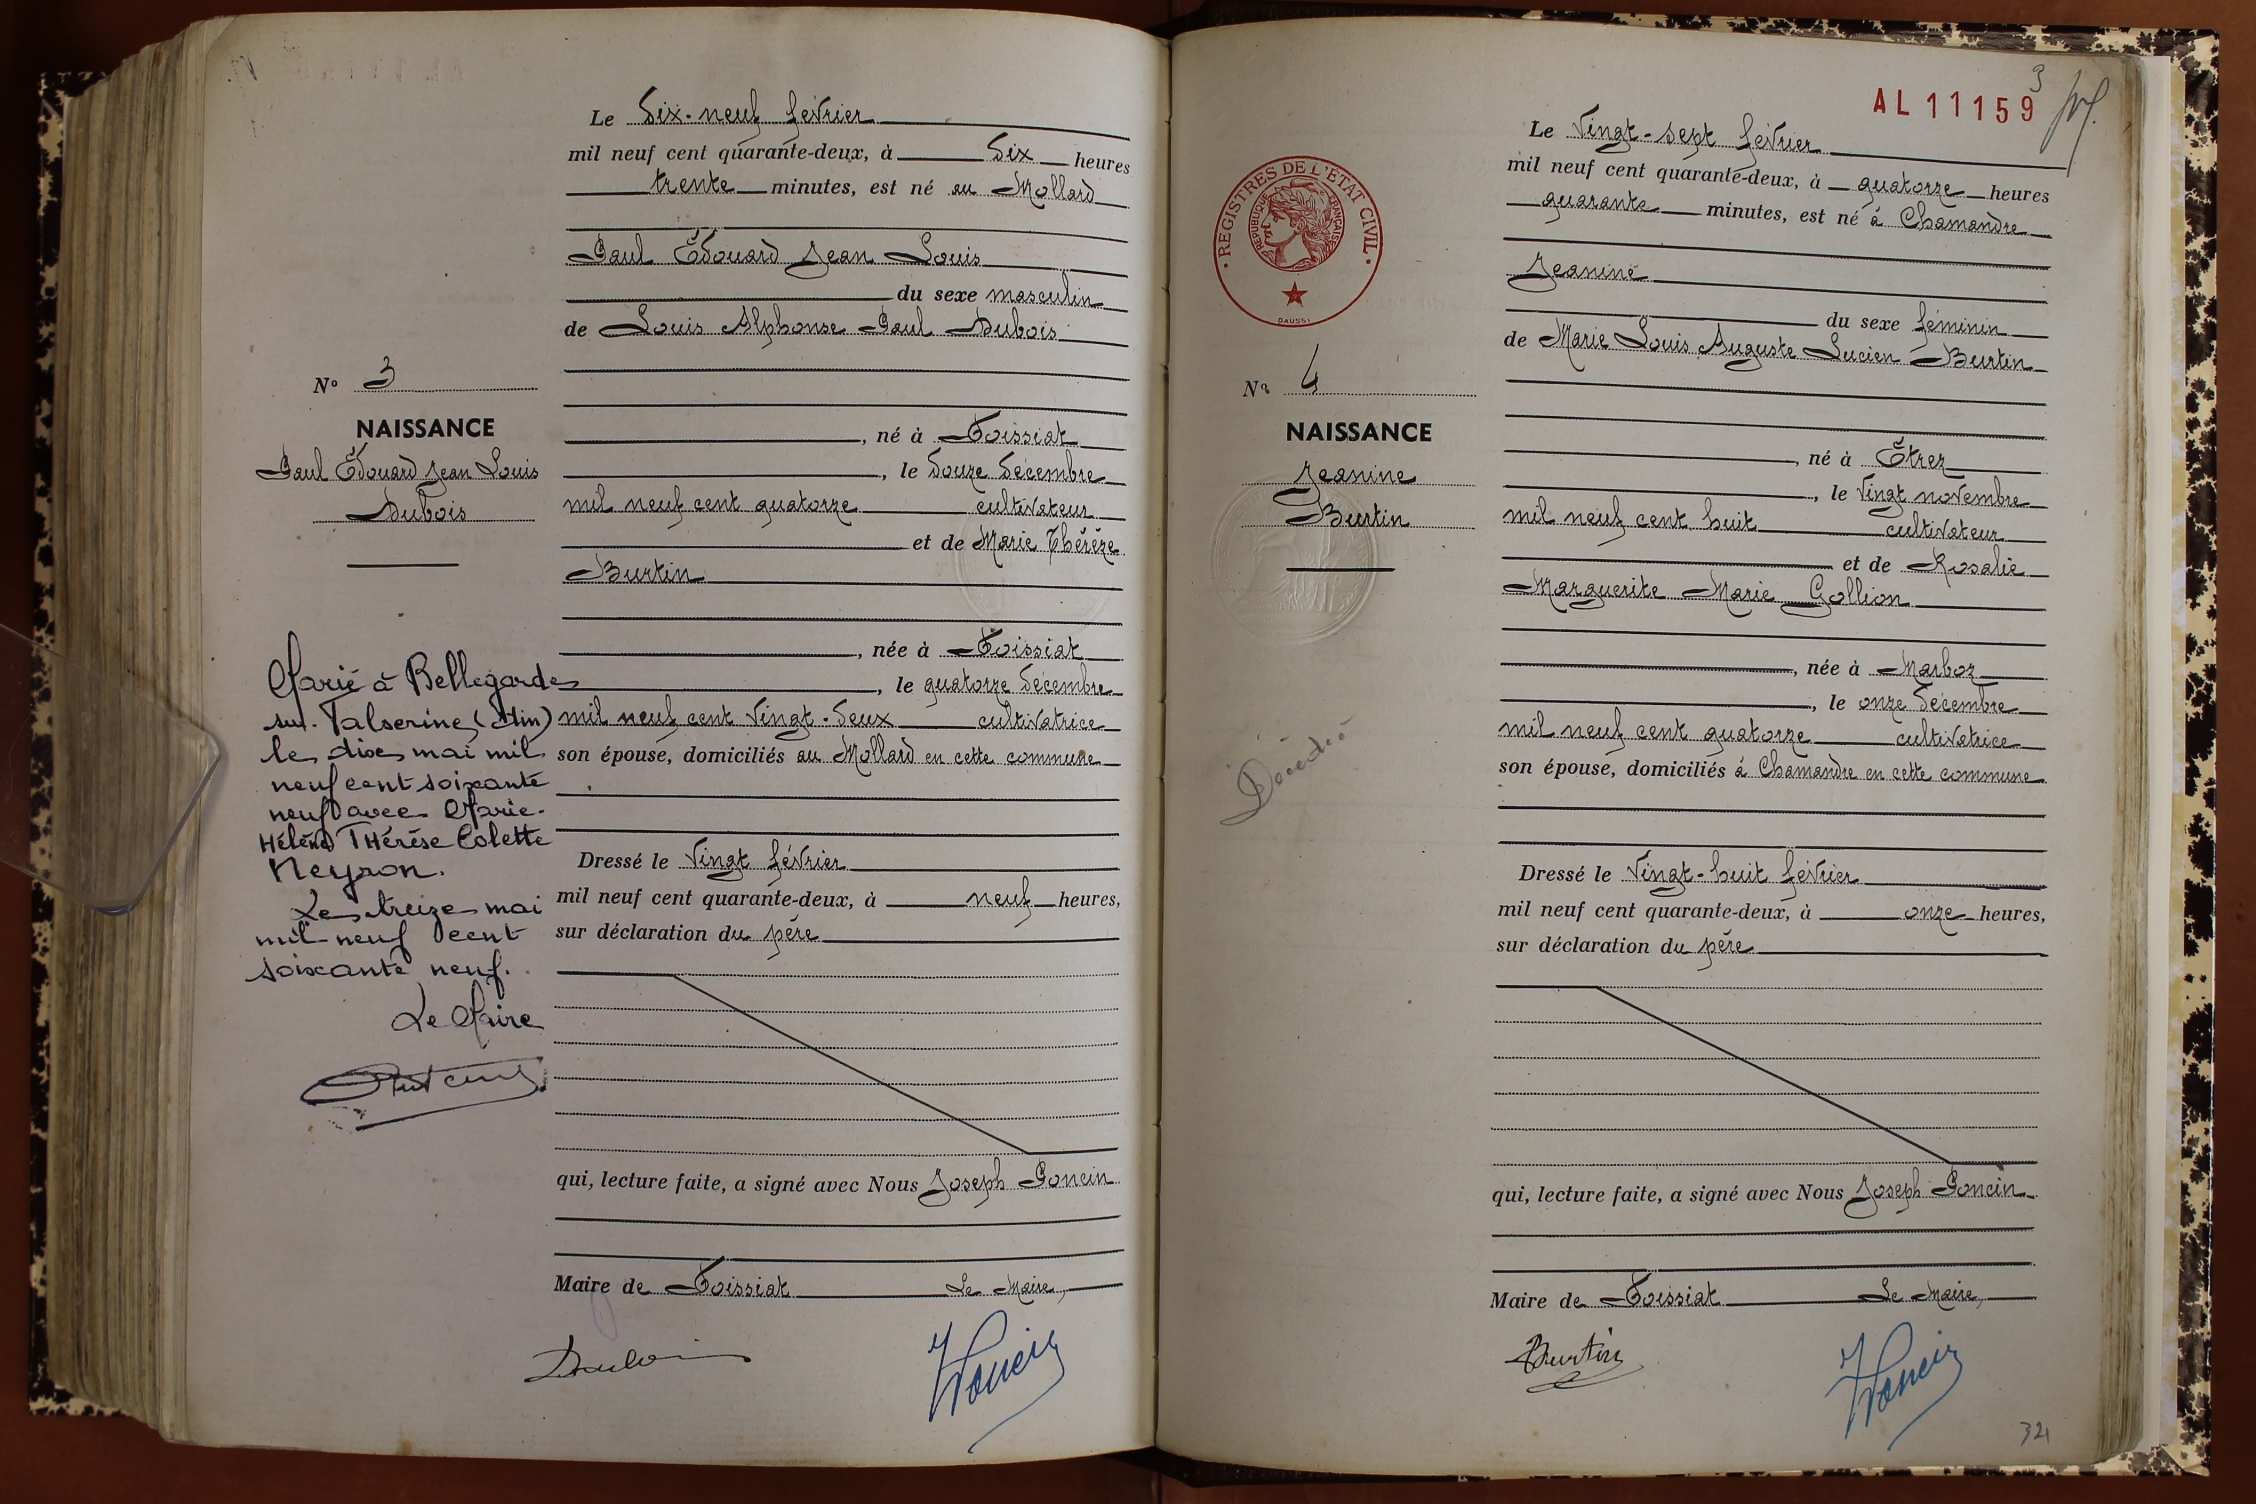 Le dix-neuf février
mil neuf cent quarante-deux, à dix heures
trente minutes, est né au Mollard
Paul Édouard Jean Louis
du sexe masculin
de Louis Alphonse Paul Dubois
N° 3
NAISSANCE
Paul Édouard Jean Louis
Dubois
, né à Foissiat
, le douze décembre
mil neuf cent quatorze cultivateur
et de Marie Thérèze
Burtin
, née à Foissiat
, le quatorze décembre
mil neuf cent vingt-deux cultivatrice
son épouse, domiciliés au Mollard en cette commune
Dressé le vingt février
mil neuf cent quarante-deux, à neuf heures,
sur déclaration du père
qui, lecture faite, a signé avec Nous Joseph Poncin
Maire de Foissiat Le Maire,
Marié à Bellegarde
sur Valserine (Ain)
le dix mai mil
neuf cent soixante
neuf avec Marie-
Hélène Thérèse Colette
Neyron.
Le treize mai
mil neuf cent
soixante neuf.
Le Maire
Dubois
J Poncin
AL 11159
3
Le vingt-sept février
mil neuf cent quarante-deux, à quatorze heures
quarante minutes, est né à Chamandre
Jeanine
du sexe féminin
de Marie Louis Auguste Lucien Burtin
REGISTRES DE L'ÉTAT CIVIL
RÉPUBLIQUE FRANÇAISE
DAUSSY
N° 4
NAISSANCE
Jeanine
Burtin
Décédée
, né à Étrez
, le vingt novembre
mil neuf cent huit cultivateur
et de Rosalie
Marguerite Marie Gollion
, née à Marboz
, le onze décembre
mil neuf cent quatorze cultivatrice
son épouse, domiciliés à Chamandre en cette commune
Dressé le vingt-huit février
mil neuf cent quarante-deux, à onze heures,
sur déclaration du père
qui, lecture faite, a signé avec Nous Joseph Poncin
Maire de Foissiat Le Maire,
Burtin
J Poncin